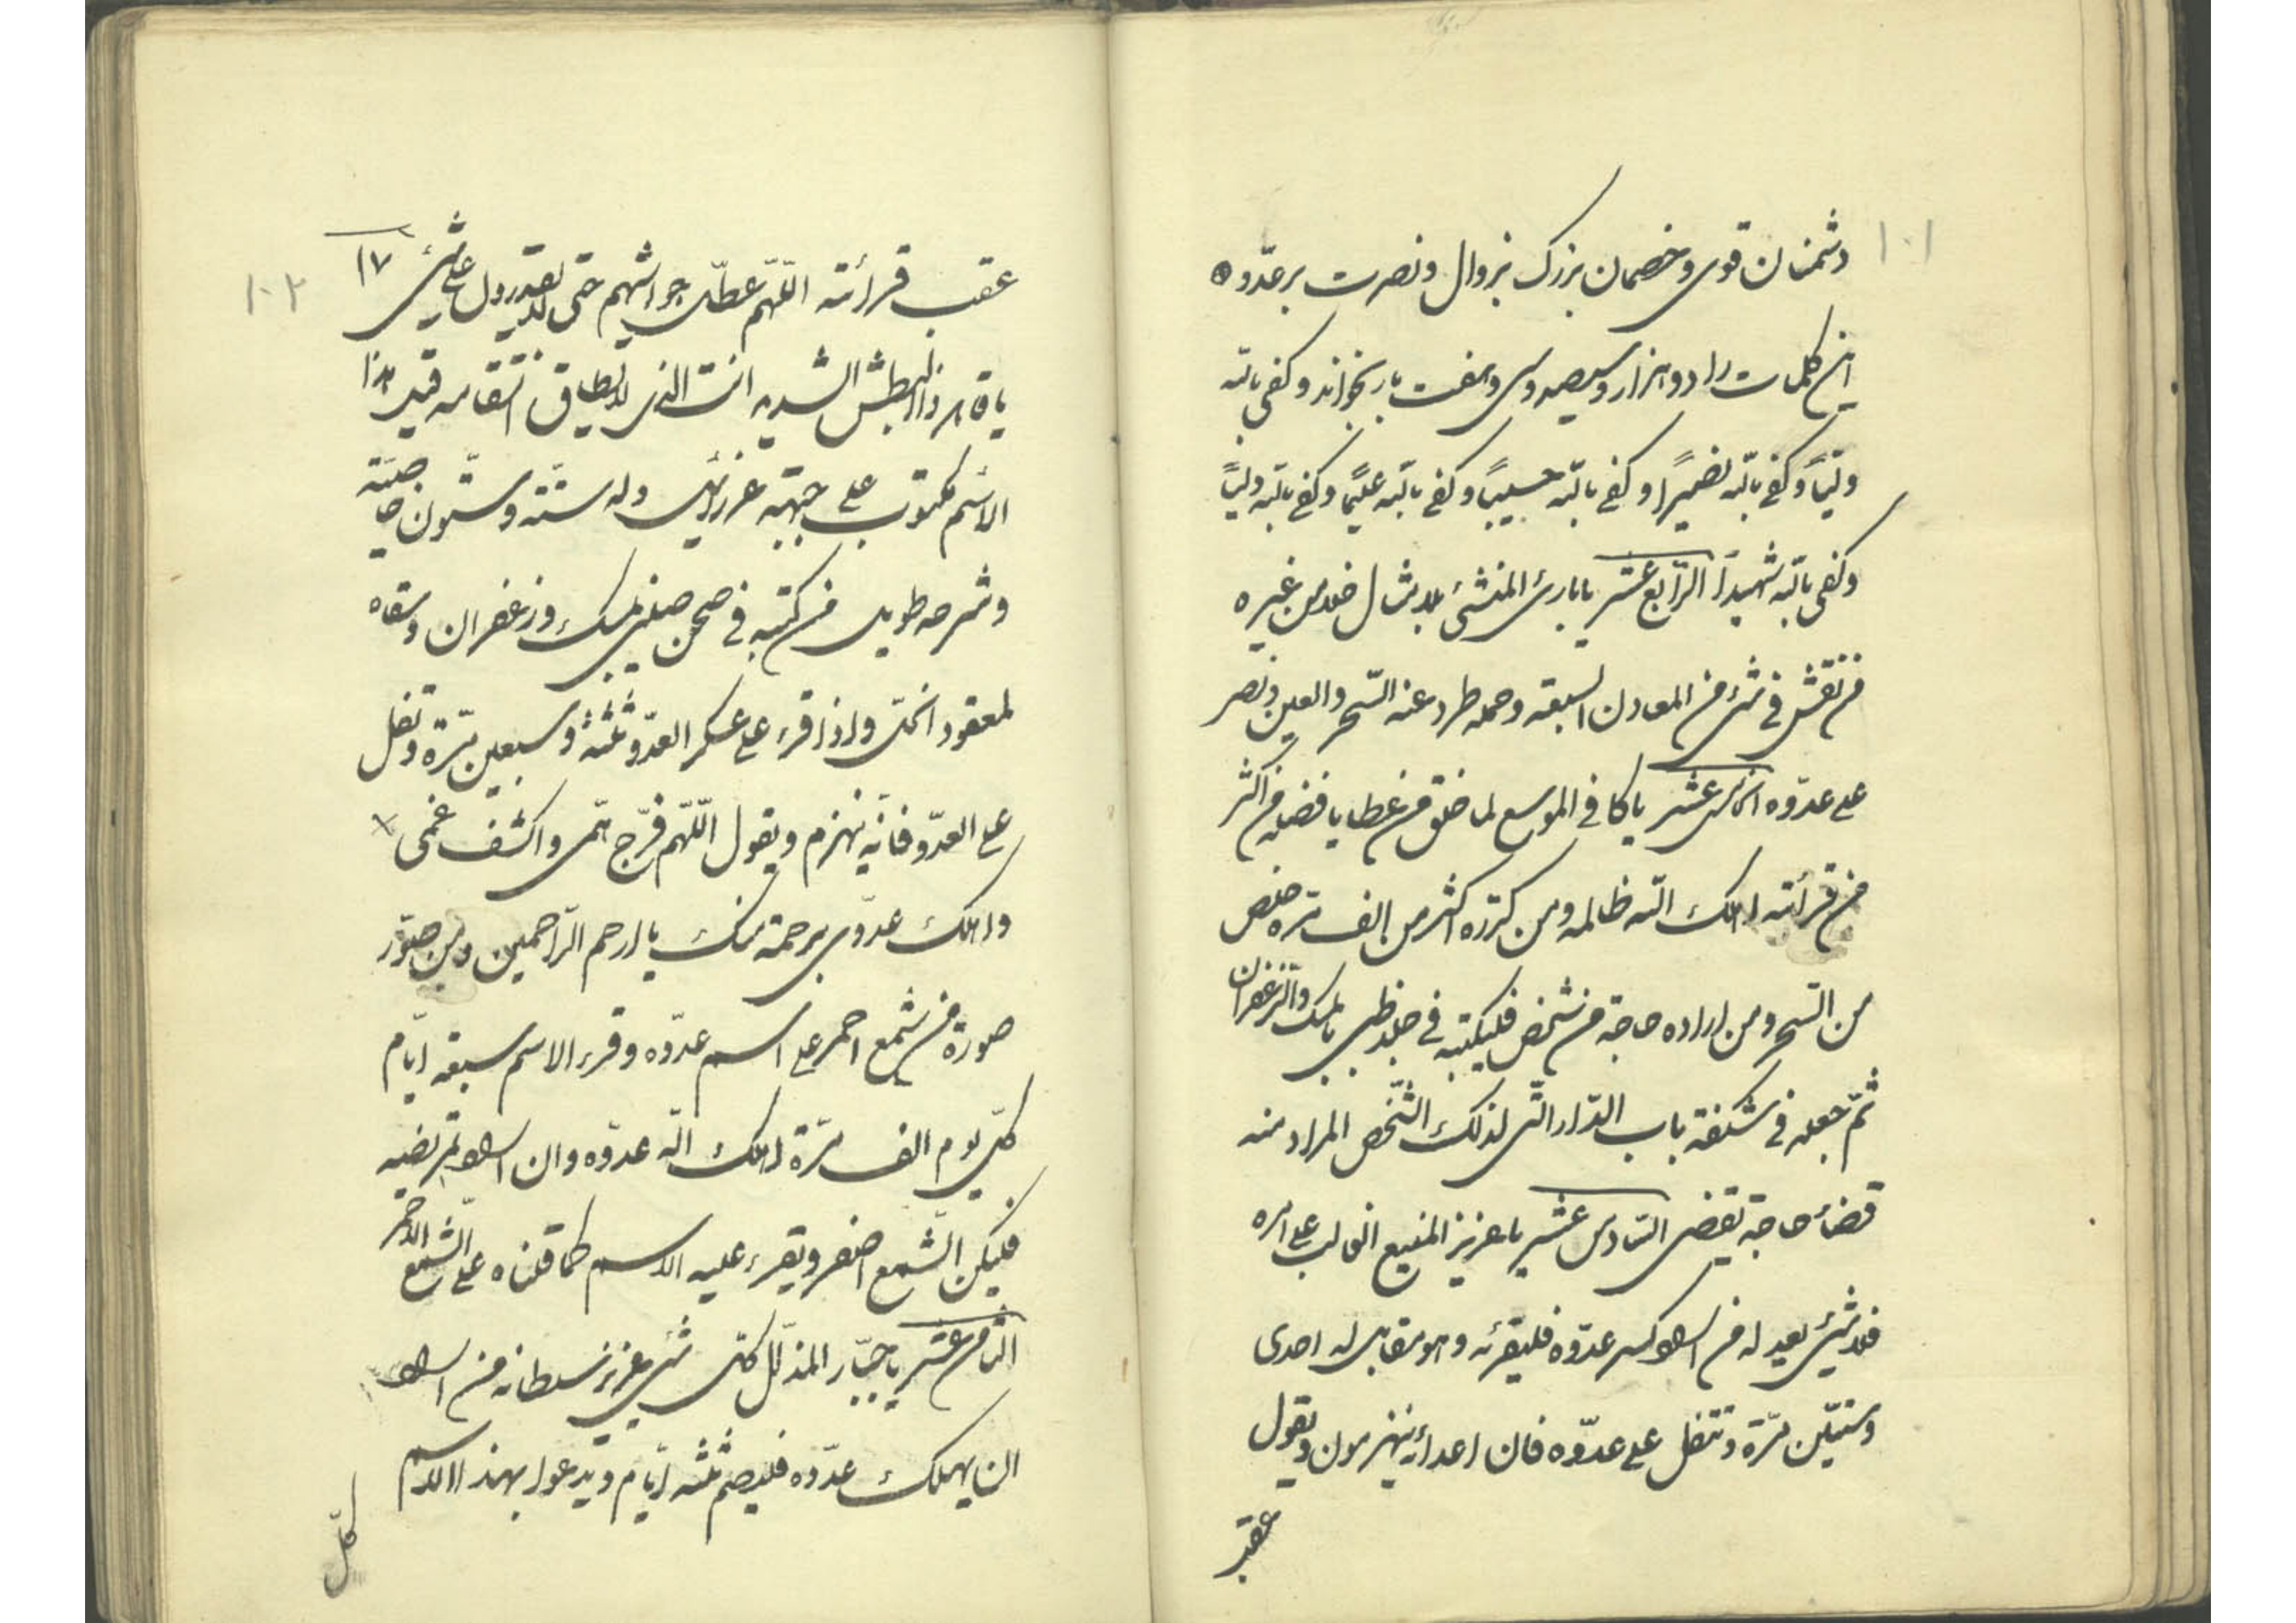 ١٠١
دشمنان قوی و خصمان بزرک بزوال و نصرت بر عدّو ه
این کلمات را دو هزار و سیصد و سی و هفت بار بخواند و کفی بالله
ولیّاً و کفی بالله نصیراً و کفی بالله حسیباً و کفی بالله علیماً و کفی بالله ولیّاً
و کفی بالله شهیداً الرّابع عشر یا بارئ المنشئ بلا مثال خلا من غیره
من نقش فی شیء من المعادن السبعة و حمله طرد عنه السّحر و العین و نصر
علی عدوّه الخامس عشر یا کافی الموسع لما خلق من عطایا فضله من اکثر
من قرائته اهلک الله ظالمه و من کرّره اکثر من الف مرّه خلص
من السّحر و من اراده حاجة من شخص فلیکتبه فی جلد ظبی بالمسک و الزّعفران
ثمّ جعله فی سکفة باب الدّار الّتی لذلک الشّخص المراد منه
قضاء حاجة یقضی السّادس عشر یا عزیز المنیع الغالب علی امره
فلا شیئ یعدله من اراد کسر عدوّه فلیقرئه و هو مقابل له احدی
و ستّین مرّة و تتفل علی عدوّه فان اعدائه ینهزمون و یقول
عقب
١٠٢
عقب قرائته اللّهمّ عطّل حواسّهم حتّی لا یقدرون علی شیء ١٧
یا قاهر ذا البطش الشدید انت الذی لا یطاق انتقامه قیل هذا
الاسم مکتوب علی جبهة عزرائیل و له ستّة و ستّون خاصیّة
و شرحه طویل من کتبه فی صحن صینی بمسک و زعفران و سقاه
لمعقود انحلّ و اذا قرء علی عسکر العدّو ثلثة و سبعین مرّة و تفل
علی العدّو فانّه ینهزم و یقول اللّهمّ فرّج همّی و اکشف غمّی
و اهلک عدّوی برحمة منک یا ارحم الرّاحمین و من صوّر
صورة من شمع احمر علی اسم عدّوه و قرء الاسم سبعة ایّام
کلّ یوم الف مرّة اهلک الله عدّوه و ان اراد تمریضه
فلیکن الشّمع اصفر و یقرء علیه الاسم کما قلناه علی الشّمع الاحمر
الثامن عشر یا جبّار المذلّل کلّ شیء بعزیز سلطانه من اراد
ان یهلک عدّوه فلیصم ثلثه ایّام و یدعوا بهذا الاسم
کلّ